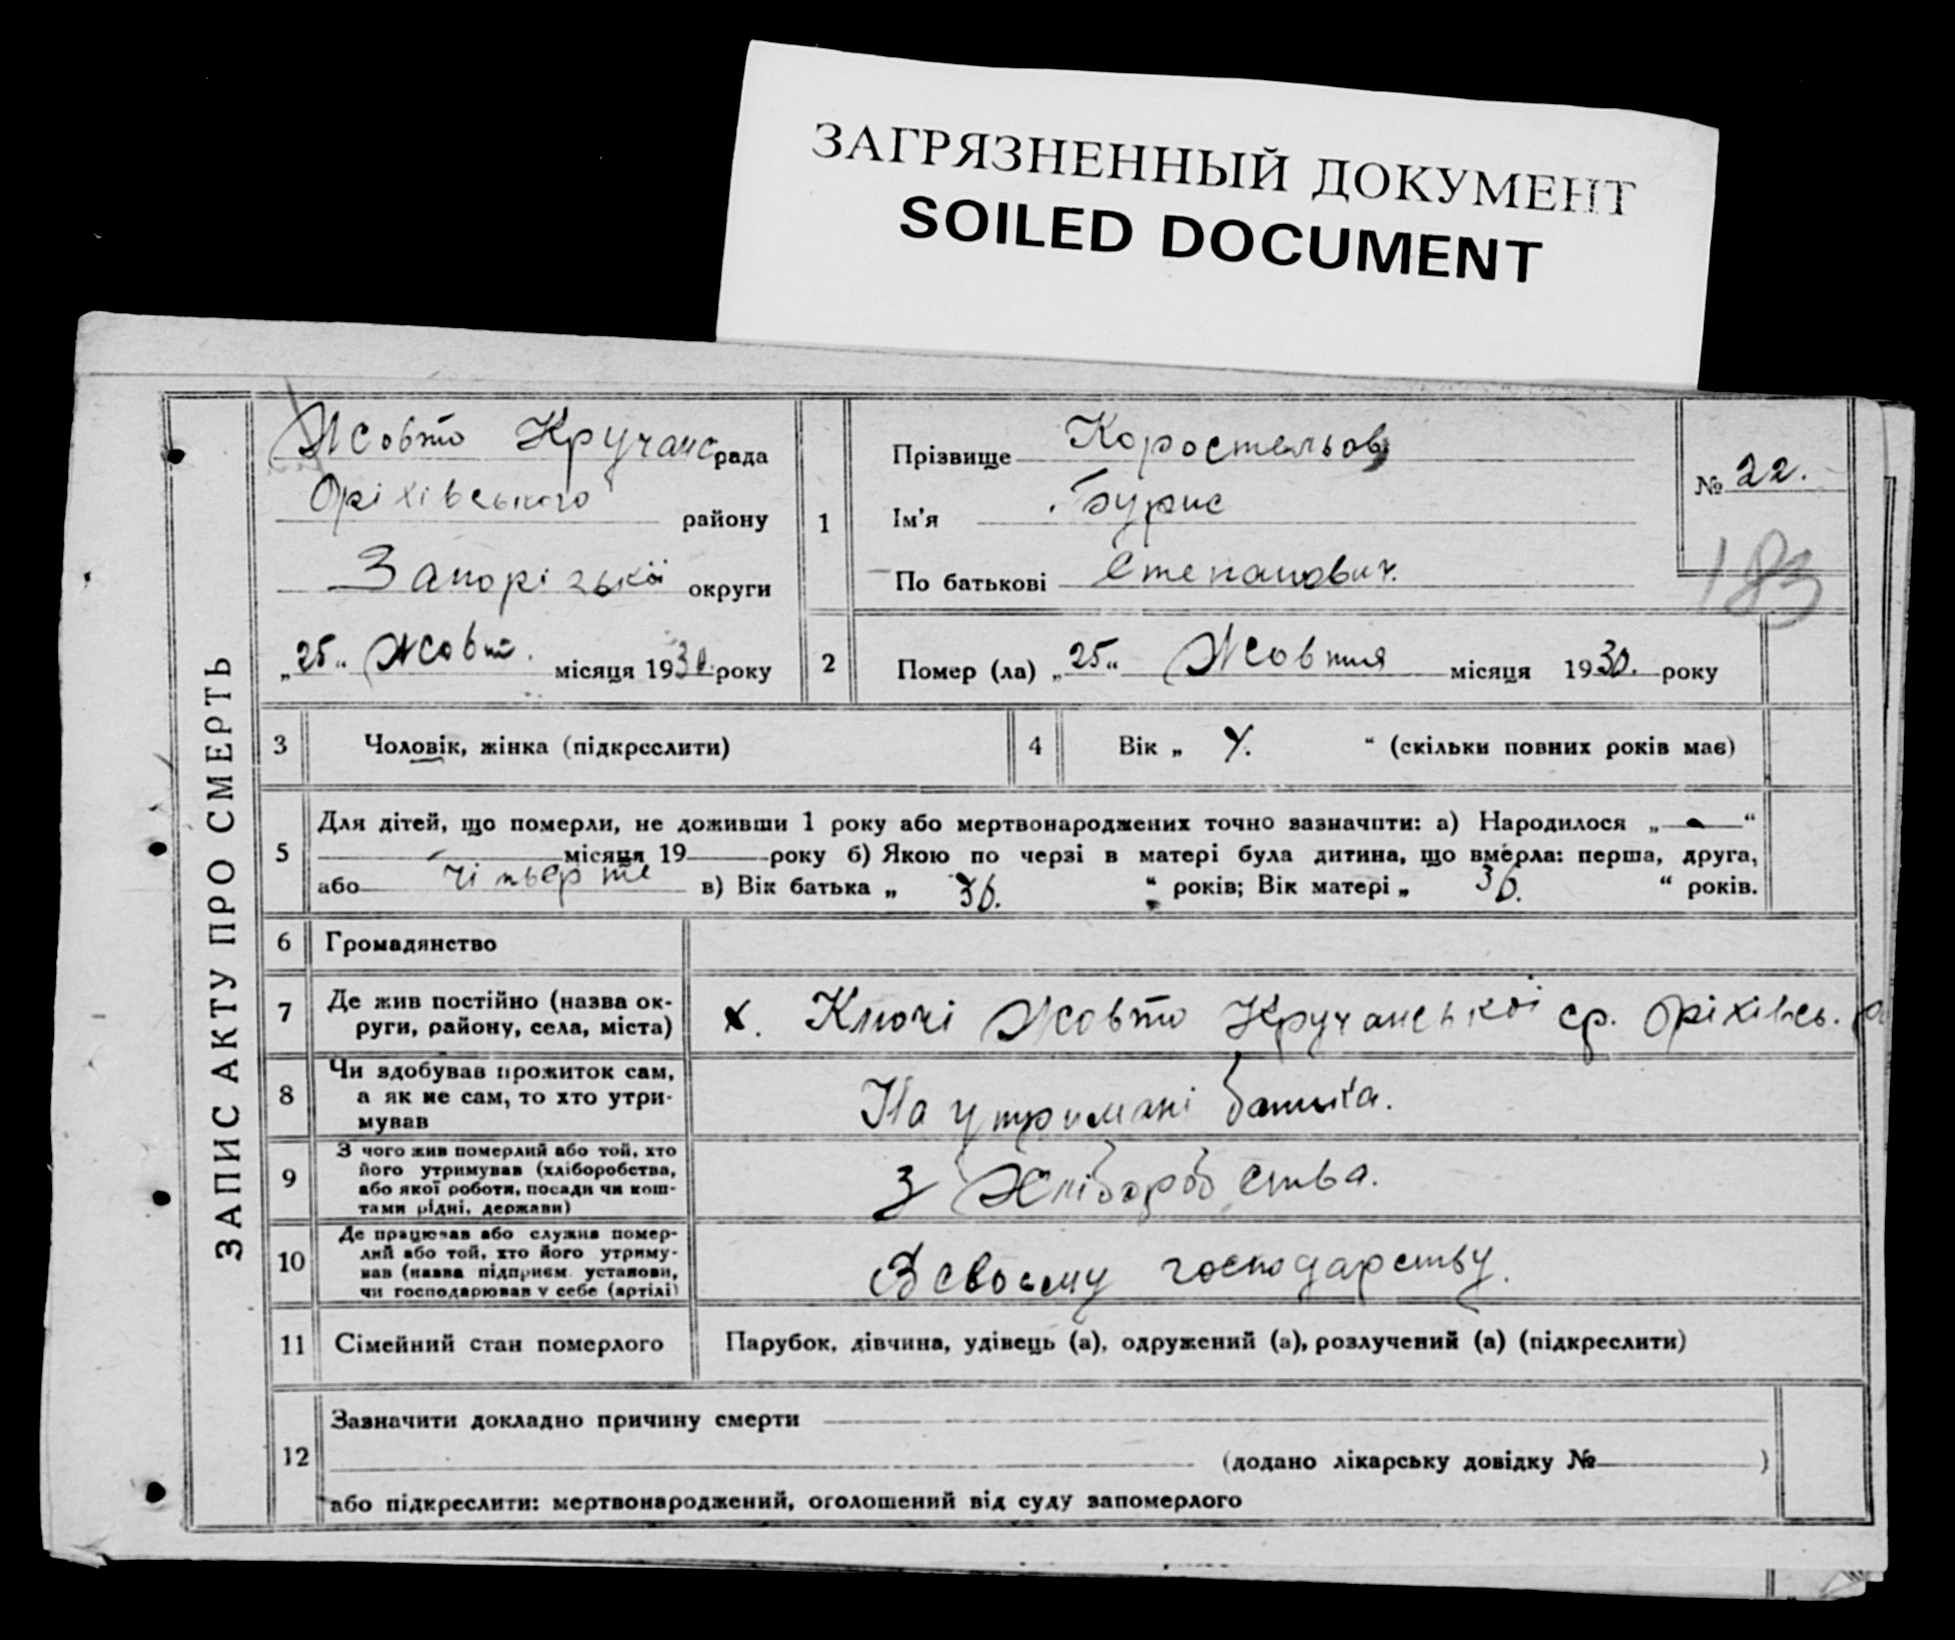 ЗАГРЯЗНЕННЫЙ ДОКУМЕНТ
SOILED DOCUMENT
ЗАПИС АКТУ ПРО СМЕРТЬ
Жовто Кручанс рада
Оріхівського району
Запорізької округи
„25" Жовт. місяця 1930. року
1
Прізвище Коростельов
Ім'я Бурис
По батькові Степанович.
№ 22.
183
2 Помер (ла) „25" Жовтня місяця 1930. року
3 Чоловік, жінка (підкреслити)
4 Вік „ 4. " (скільки повних років має)
5 Для дітей, що померли, не доживши 1 року або мертвонароджених точно зазначити: а) Народилося „ "
місяця 19 року б) Якою по черзі в матері була дитина, що вмерла: перша, друга,
або чітьерте в) Вік батька „ 36. " років; Вік матері „ 36. " років.
6 Громадянство
7 Де жив постійно (назва ок-
руги, району, села, міста)
х. Ключі Жовто Кручанської ср. Оріхівсь. р
8 Чи здобував прожиток сам,
а як не сам, то хто утри-
мував
На утримані батька.
9 З чого жив померлий або той, хто
його утримував (хліборобства,
або якої роботи, посади чи кош-
тами рідні, держави)
З Хліборобства.
10 Де працював або служив помер-
лий або той, хто його утриму-
вав (назва підприєм. установи,
чи господарював у себе (артілі)
В своєму господарству.
11 Сімейний стан померлого
Парубок, дівчина, удівець (а), одружений (а), розлучений (а) (підкреслити)
12 Зазначити докладно причину смерти
(додано лікарську довідку № )
або підкреслити: мертвонароджений, оголошений від суду запомерлого